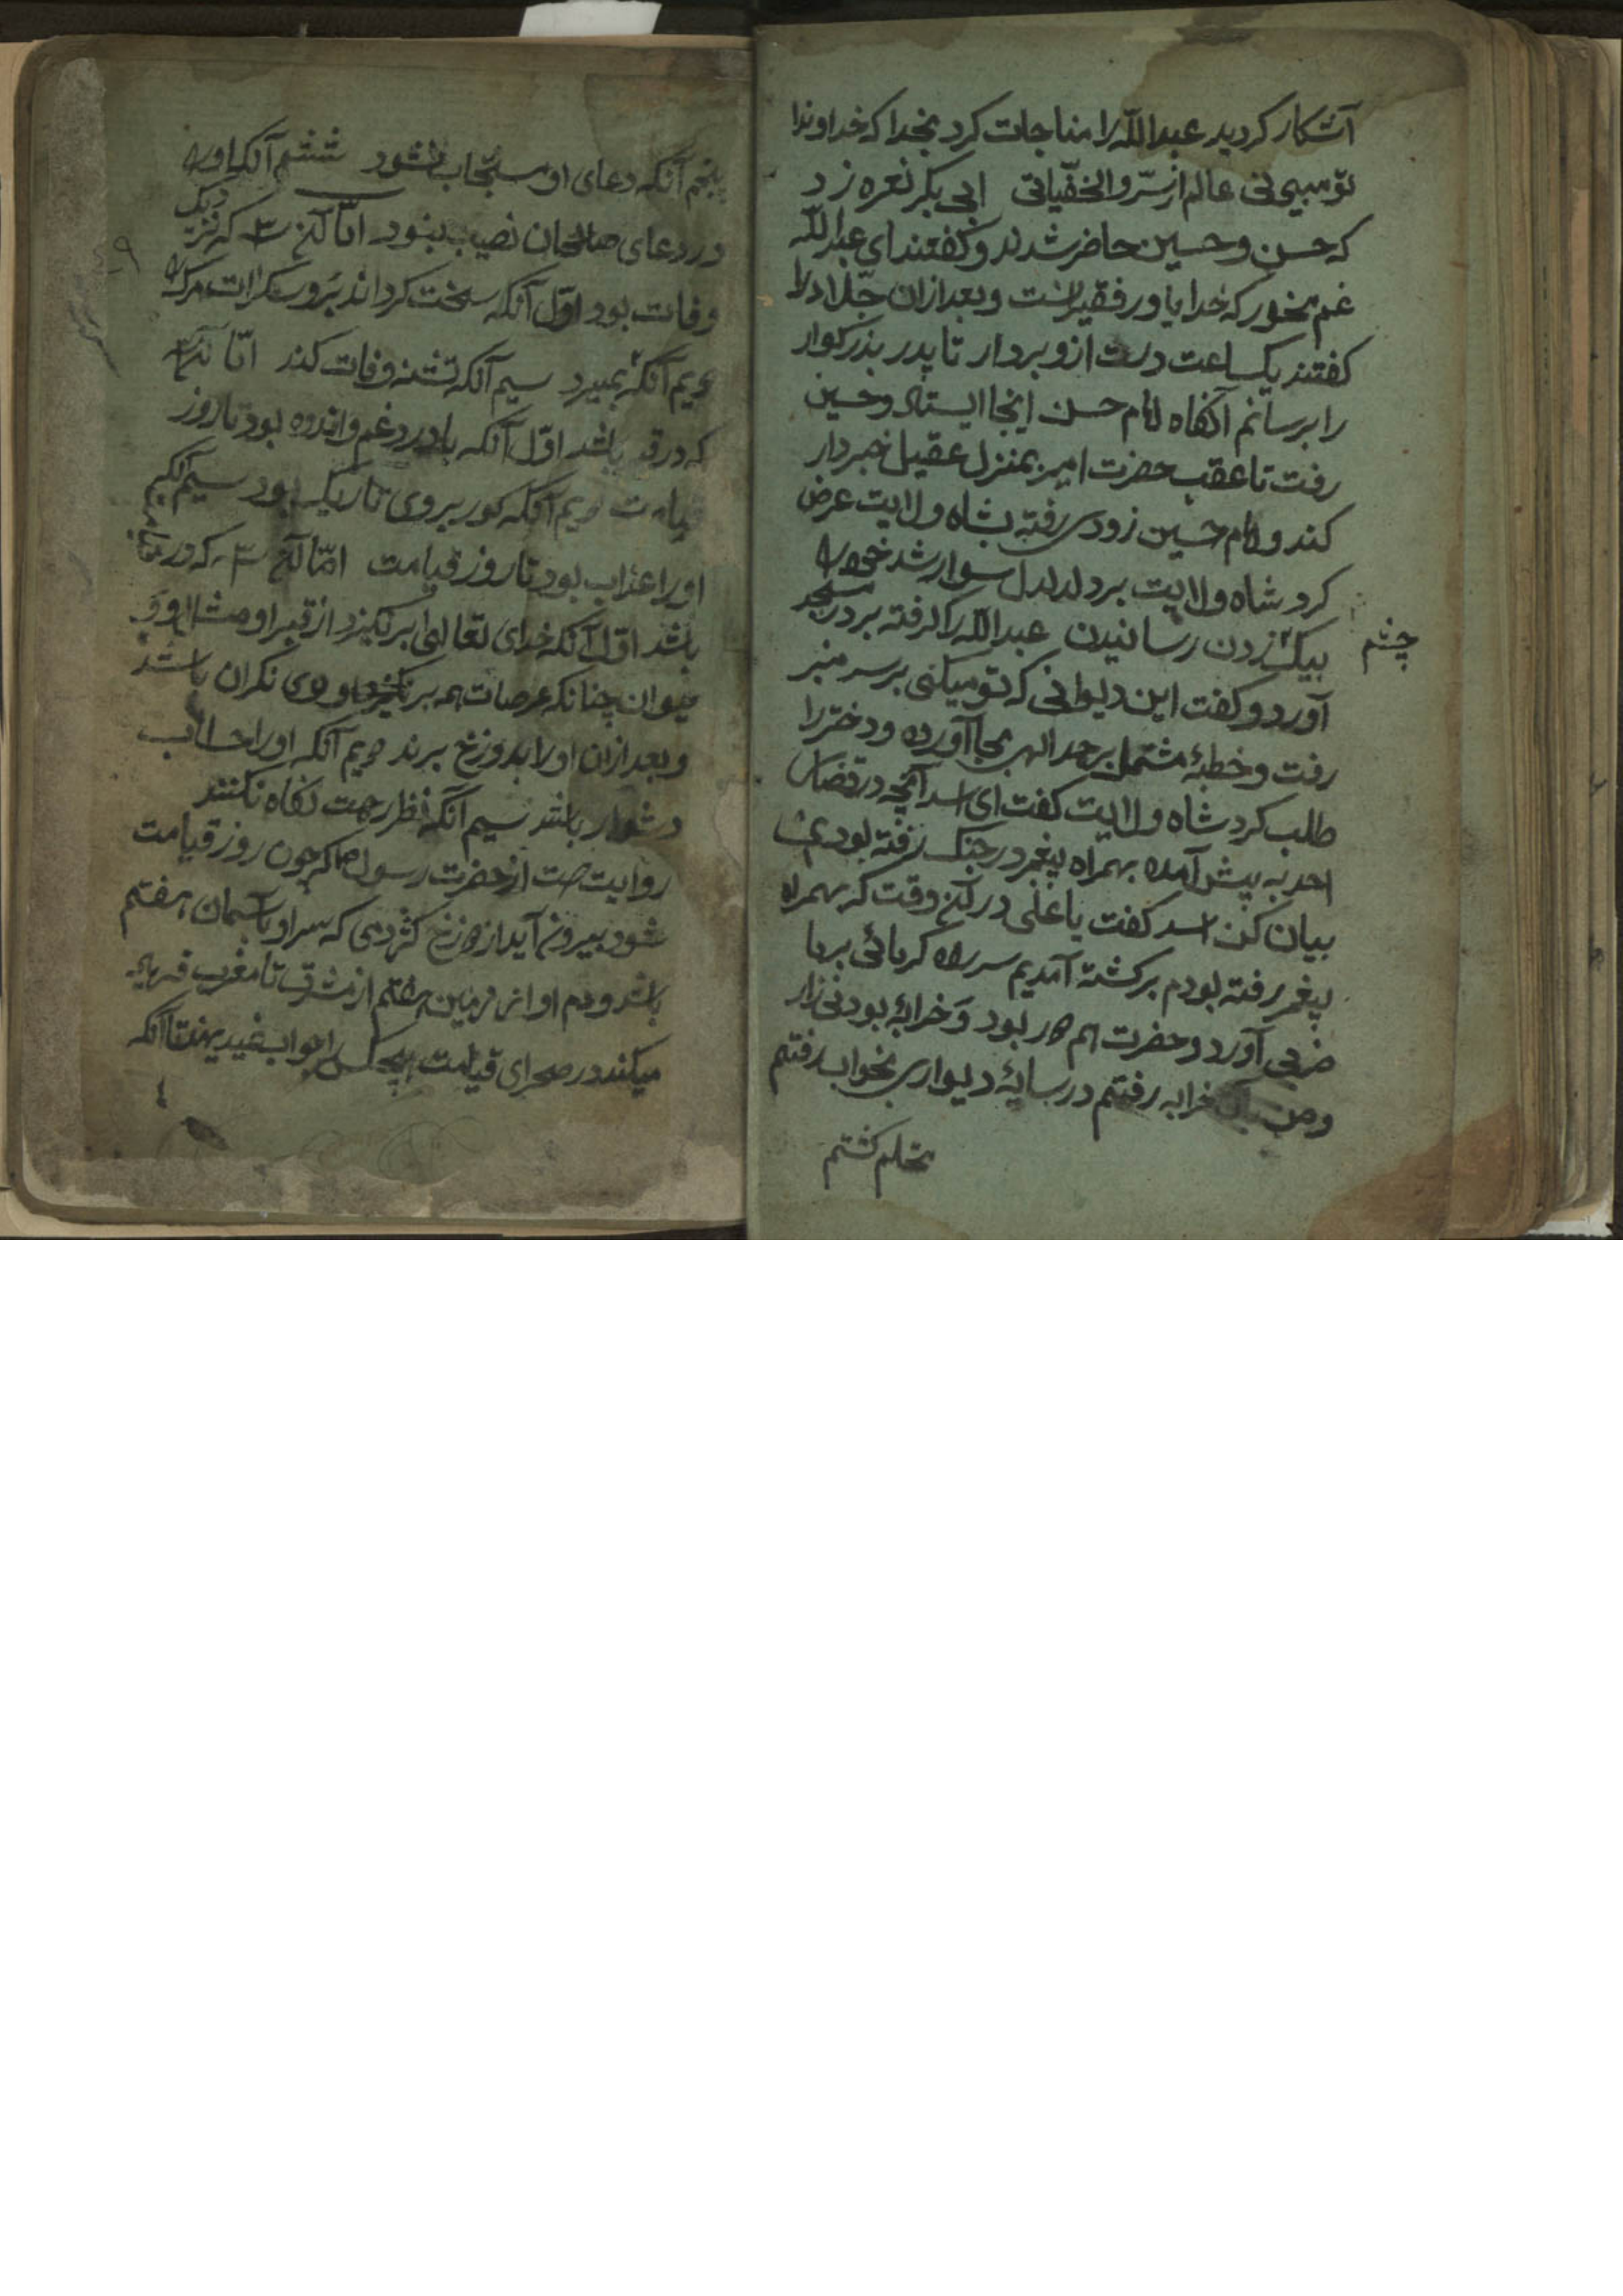 آشکار کردید عبداللّه را مناجات کرد بخدا که خداوندا
تو میبینی عالم از سرّ والخفّیاتی ابی بکر نعره زد
که حسن و حسین حاضر شدند و کفتند ای عبداللّه
غم مخور که خدا یاور فقیرانست و بعد ازان جلّاد را
کفتند یکساعت دست ازو بردار تا پدر بذرکوار
را برسانم آنکاه امام حسن اینجا ایستاد و حسین
رفت تا عقب حضرت امیر بمنزل عقیل خبردار
کند و امام حسین زودی رفته بشاه ولایت عرض
کرد شاه ولایت بر دلدل سوار شد خود را
بیک زدن رسانیدن عبداللّه را کرفته بر در مسجد
چشم
آورد و کفت این دیوانی که تو میکنی بر سر منبر
رفت و خطبهٔ مشتمل بر حمد الهی بجا آورده و دختر را
طلب کرد شاه ولایت کفت ای اسد آنچه در قضای
احد به پیش آمده بهمراه پیغمبر در جنک رفته بودی
بیان کن اسد کفت یا علی در آنوقت که بهمراه
پیغمبر رفته بودم برکشته آمدیم سر راه کرمائی بر ما
ضربی آورد و حضرت هم در بود و خرابهٔ بود نی زار
و من خرابه رفتم در سایهٔ دیواری بخواب رفتم
محتلم کشتم
پنجم آنکه دعای او مستجاب نشود ششم آنکه او را
در دعای صالحان نصیب نبود امّا آن ۳ که نزدیک
وفات بود اوّل آنکه سخت کرداند برو سکرات مرک
دویم آنکه بمیرد سیم آنکه تشنه وفات کند امّا آن ۳
که در قبر باشد اوّل آنکه با درد و غم و اندوه بود تا روز
قیامت دویم آنکه کور بروی تاریک بود سیم آنکه
او را عذاب بود تا روز قیامت امّا آن ۳ که در قیامت
باشد اوّل آنکه خدای تعالی برنکیزد از قبر او
حیوان چنانکه عرصات همه بر نکران باشند
و بعد ازان او را بدوزخ برند دویم آنکه او را حساب
دشوار باشد سیم آنکه نظر رحمت نکاه نکنند
روایت است از حضرت رسول ص که چون روز قیامت
شود بیرون آید از دوزخ کژدمی که سر او بآسمان هفتم
باشد و دم او از زمین هفتم از مشرق تا مغرب
میکند در صحرای قیامت هیچکس را جواب نمیدهند تا آنکه